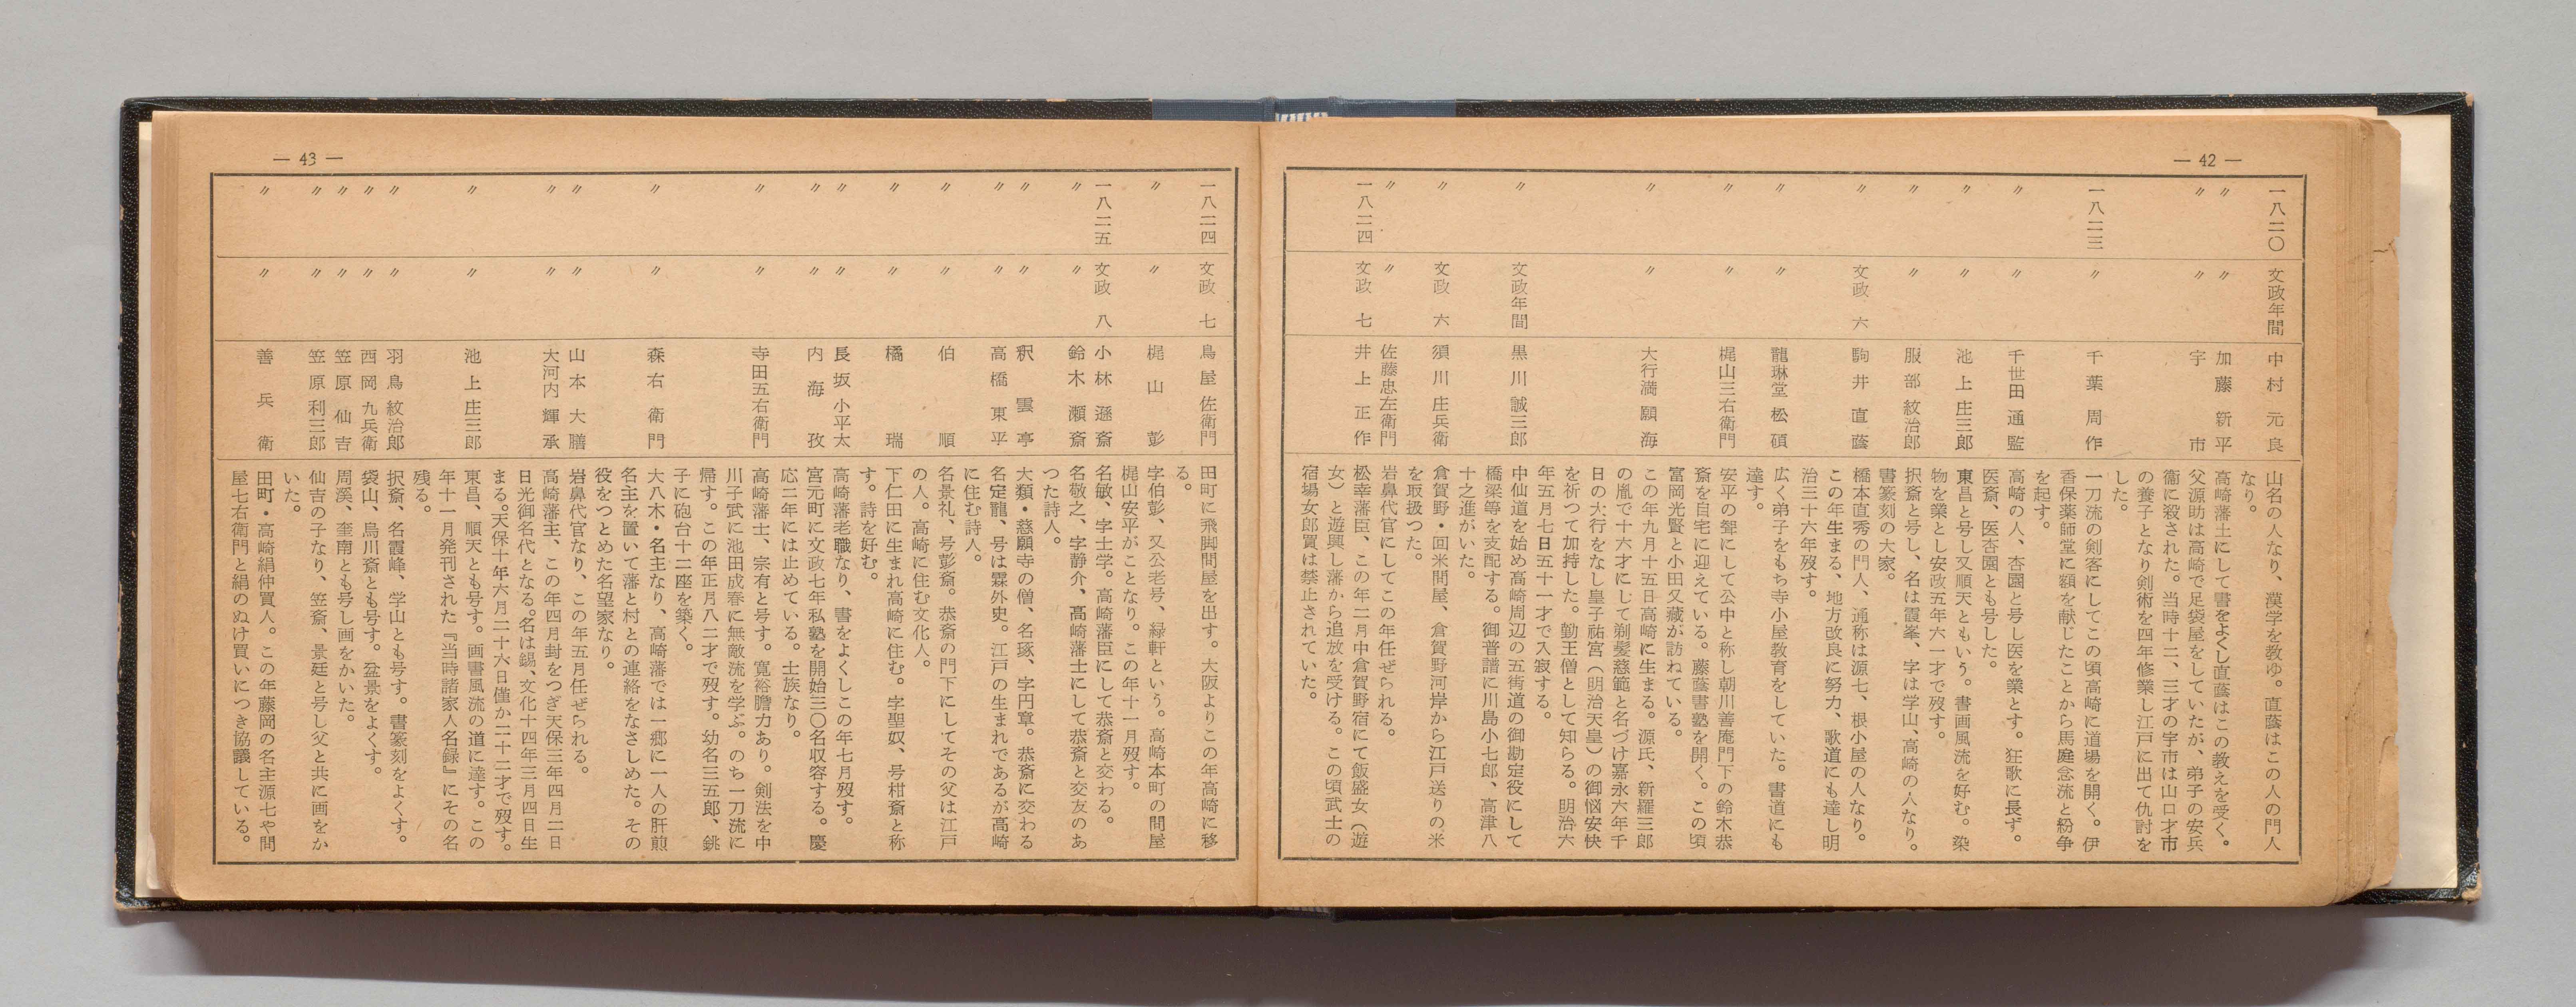 — 42 —
一八二〇 文政年間 中村元良 山名の人なり、漢学を教ゆ。直蔭はこの人の門人
なり。
〃 〃 加藤新平 高崎藩士にして書をよくし直蔭はこの教えを受く。
〃 〃 宇市 父源助は高崎で足袋屋をしていたが、弟子の安兵
衞に殺された。当時十二、三才の宇市は山口才市
の養子となり剣術を四年修業し江戸に出て仇討を
した。
一八二三 〃 千葉周作 一刀流の剣客にしてこの頃高崎に道場を開く。伊
香保薬師堂に額を献じたことから馬庭念流と紛争
を起す。
〃 〃 千世田通監 高崎の人、杏園と号し医を業とす。狂歌に長ず。
医斎、医杏園とも号した。
〃 〃 池上庄三郎 東昌と号し又順天ともいう。書画風流を好む。染
物を業とし安政五年六一才で歿す。
〃 〃 服部紋治郎 択斎と号し、名は霞峯、字は学山、高崎の人なり。
書篆刻の大家。
〃 文政六 駒井直蔭 橋本直秀の門人、通称は源七、根小屋の人なり。
この年生まる、地方改良に努力、歌道にも達し明
治三十六年歿す。
〃 〃 龍琳堂松碩 広く弟子をもち寺小屋教育をしていた。書道にも
達す。
〃 〃 梶山三右衛門 安平の聟にして公中と称し朝川善庵門下の鈴木恭
斎を自宅に迎えている。藤蔭書塾を開く。この頃
富岡光賢と小田又蔵が訪ねている。
〃 〃 大行満願海 この年九月十五日高崎に生まる。源氏、新羅三郎
の胤で十六才にして剃髪慈範と名づけ嘉永六年千
日の大行をなし皇子祐宮(明治天皇)の御悩安快
を祈つて加持した。勤王僧として知らる。明治六
年五月七日五十一才で入寂する。
〃 文政年間 黒川誠三郎 中仙道を始め高崎周辺の五街道の御勘定役にして
橋梁等を支配する。御普請に川島小七郎、高津八
十之進がいた。
〃 文政六 須川庄兵衛 倉賀野・回米問屋、倉賀野河岸から江戸送りの米
を取扱つた。
〃 〃 佐藤忠左衛門 岩鼻代官にしてこの年任ぜられる。
一八二四 文政七 井上正作 松幸藩臣、この年二月中倉賀野宿にて飯盛女(遊
女)と遊興し藩から追放を受ける。この頃武士の
宿場女郎買は禁止されていた。
— 43 —
一八二四 文政七 鳥屋佐衛門 田町に飛脚問屋を出す。大阪よりこの年高崎に移
る。
〃 〃 梶山彭 字伯彭、又公老号、緑軒という。高崎本町の問屋
梶山安平がことなり。この年十一月歿す。
一八二五 文政八 小林遜斎 名敏、字士学。高崎藩臣にして恭斎と交わる。
〃 〃 鈴木瀬斎 名敬之、字静介、高崎藩士にして恭斎と交友のあ
つた詩人。
〃 〃 釈雲亭 大類・慈願寺の僧、名琢、字円章。恭斎に交わる
〃 〃 高橋東平 名定龍、号は霖外史。江戸の生まれであるが高崎
に住む詩人。
〃 〃 伯順 名景礼、号彭斎。恭斎の門下にしてその父は江戸
の人。高崎に住む文化人。
〃 〃 橘瑞 下仁田に生まれ高崎に住む。字聖奴、号柑斎と称
す。詩を好む。
〃 〃 長坂小平太 高崎藩老職なり、書をよくしこの年七月歿す。
〃 〃 内海孜 宮元町に文政七年私塾を開始三〇名収容する。慶
応二年には止めている。士族なり。
〃 〃 寺田五右衛門 高崎藩士、宗有と号す。寛裕膽力あり。剣法を中
川子武に池田成春に無敵流を学ぶ。のち一刀流に
帰す。この年正月八二才で歿す。幼名三五郎、銚
子に砲台十二座を築く。
〃 〃 森右衛門 大八木・名主なり、高崎藩では一郷に一人の肝煎
名主を置いて藩と村との連絡をなさしめた。その
役をつとめた名望家なり。
〃 〃 山本大膳 岩鼻代官なり、この年五月任ぜられる。
〃 〃 大河内輝承 高崎藩主、この年四月封をつぎ天保三年四月二日
日光御名代となる。名は錫、文化十四年三月四日生
まる。天保十年六月二十六日僅か二十二才で歿す。
〃 〃 池上庄三郎 東昌、順天とも号す。画書風流の道に達す。この
年十一月発刊された『当時諸家人名録』にその名
残る。
〃 〃 羽鳥紋治郎 択斎、名霞峰、学山とも号す。書篆刻をよくす。
〃 〃 西岡九兵衛 袋山、烏川斎とも号す。盆景をよくす。
〃 〃 笠原仙吉 周溪、奎南とも号し画をかいた。
〃 〃 笠原利三郎 仙吉の子なり、笠斎、景廷と号し父と共に画をか
いた。
〃 〃 善兵衛 田町・高崎絹仲買人。この年藤岡の名主源七や間
屋七右衛門と絹のぬけ買いにつき協議している。